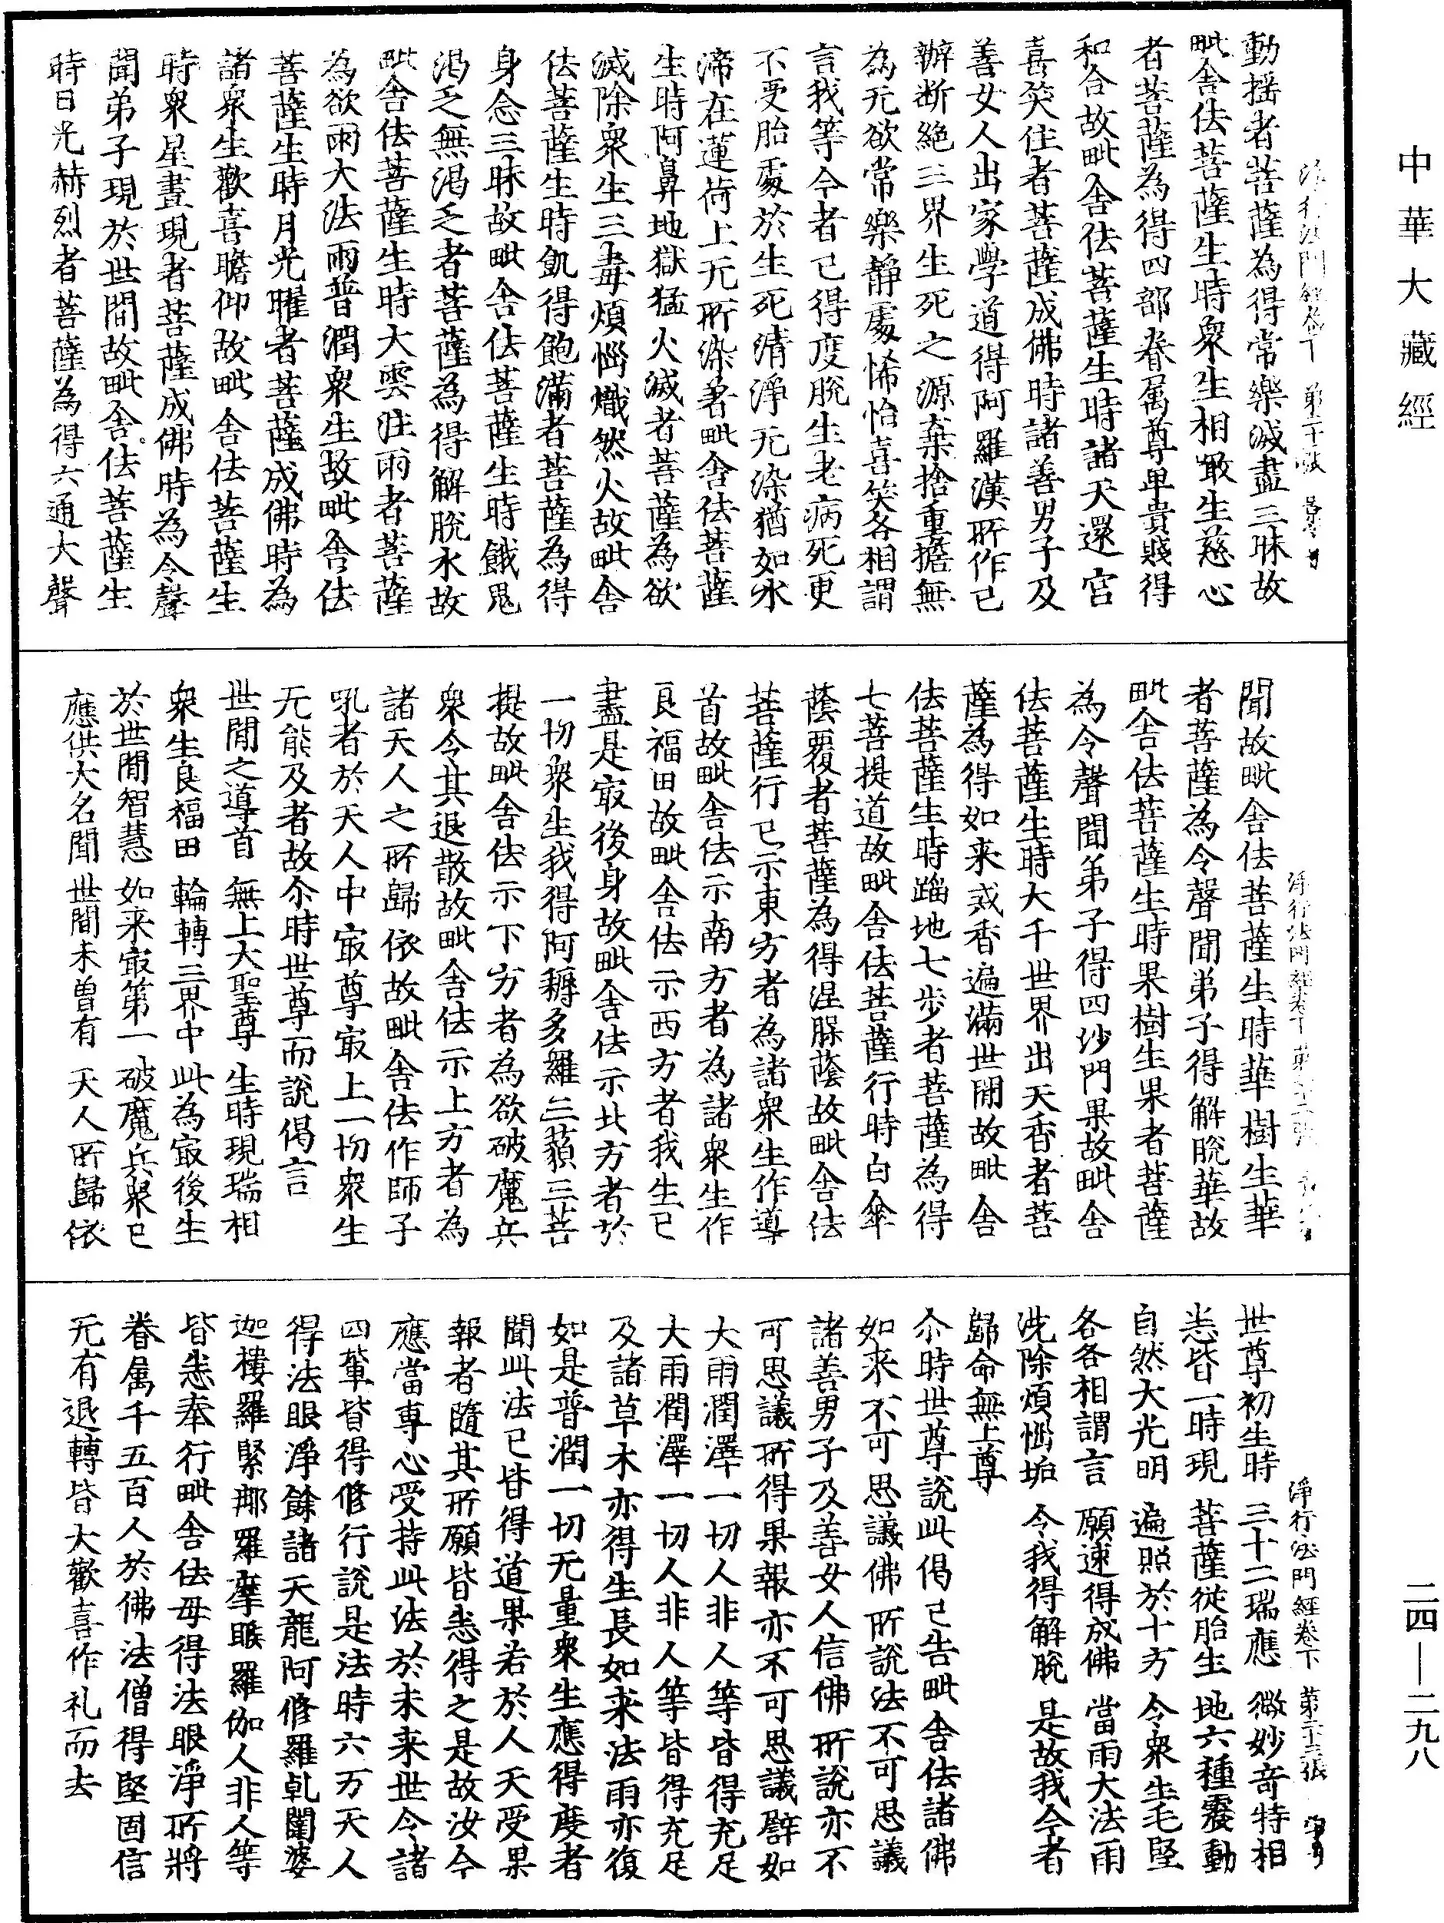 中華大藏經
動揺者菩薩為得常樂滅盡三昧故
毗舍佉菩薩生時衆生相敢生慈心
者菩薩為得四部眷属尊卑貴賤得
和合故毗舍佉菩薩生時諸天還宮
喜笑住者菩薩成佛時諸善男子及
善女人出家學道得阿羅漢所作已
辦断絶三界生死之源棄捨重擔無
為无欲常樂靜處悕怡喜笑各相謂
言我等今者已得度脫生老病死更
不受胎處於生死清淨无染猶如水
渧在蓮荷上无所染著毗舍佉菩薩
生時阿鼻地獄猛火滅者菩薩為欲
滅除衆生三毒煩惱熾然火故毗舍
佉菩薩生時飢得飽滿者菩薩為得
身念三昧故毗舍佉菩薩生時餓鬼
渴乏無渴乏者菩薩為得解脫水故
毗舍佉菩薩生時大雲注雨者菩薩
為欲雨大法雨普潤衆生故毗舍佉
菩薩生時月光曜者菩薩成佛時為
諸衆生歡喜瞻仰故毗舍佉菩薩生
時衆星晝現者菩薩成佛時為令聲
聞弟子現於世間故毗舍佉菩薩生
時日光赫烈者菩薩為得六通大聲
聞故毗舍佉菩薩生時華樹生華
者菩薩為令聲聞弟子得解脫華故
毗舍佉菩薩生時果樹生果者菩薩
為令聲聞弟子得四沙門果故毗舍
佉菩薩生時大千世界出天香者菩
薩為得如来戒香遍滿世間故毗舍
佉菩薩生時蹈地七步者菩薩為得
七菩提道故毗舍佉菩薩行時白傘
蔭覆者菩薩為得涅槃蔭故毗舍佉
菩薩行已示東方者為諸衆生作導
首故毗舍佉示南方者為諸衆生作
良福田故毗舍佉示西方者我生已
盡是寂後身故毗舍佉示北方者於
一切衆生我得阿耨多羅三藐三菩
提故毗舍佉示下方者為欲破魔兵
衆令其退散故毗舍佉示上方者為
諸天人之所歸依故毗舍佉作師子
吼者於天人中寂尊寂上一切衆生
无能及者故尒時世尊而說偈言
世間之導首　無上大聖尊　生時現瑞相
衆生良福田　輪轉三界中　此為寂後生
於世間智慧　如来寂第一　破魔兵衆已
應供大名聞　世間未曾有　天人所歸依
淨行法門經卷下　第二十三張
世尊初生時　三十二瑞應　微妙奇特相
悉皆一時現　菩薩從胎生　地六種震動
自然大光明　遍照於十方　令衆生毛竪
各各相謂言　願速得成佛　當雨大法雨
洗除煩惱垢　令我得解脫　是故我今者
歸命無上尊
尒時世尊說此偈已告毗舍佉諸佛
如来不可思議佛所說法不可思議
諸善男子及善女人信佛所說亦不
可思議所得果報亦不可思議譬如
大雨潤澤一切人非人等皆得充足
大雨潤澤一切人非人等皆得充足
及諸草木亦得生長如来法雨亦復
如是普潤一切无量衆生應得度者
聞此法已皆得道果若於人天受果
報者隨其所願皆悉得之是故汝今
應當專心受持此法於未来世令諸
四輩皆得修行說是法時六万天人
得法眼淨餘諸天龍阿修羅乹闥婆
迦樓羅緊那羅摩睺羅伽人非人等
皆悉奉行毗舍佉母得法眼淨所將
眷属千五百人於佛法僧得堅固信
无有退轉皆大歡喜作礼而去
二四—二九八